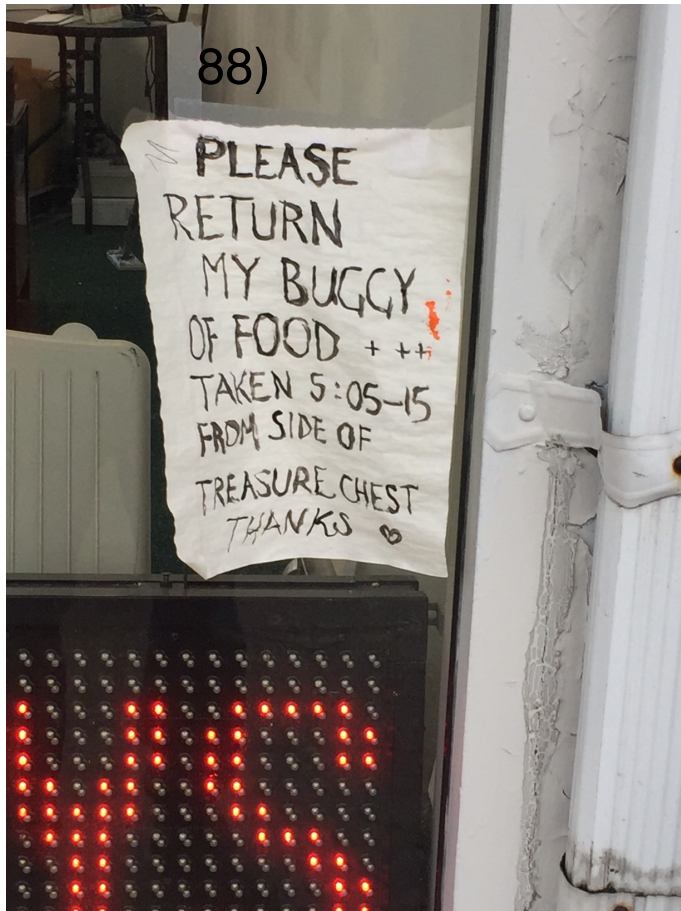 88)
PLEASE
RETURN
MY BUGGY
OF FOOD + ++
TAKEN 5:05-15
FROM SIDE OF
TREASURE CHEST
THANKS ♡